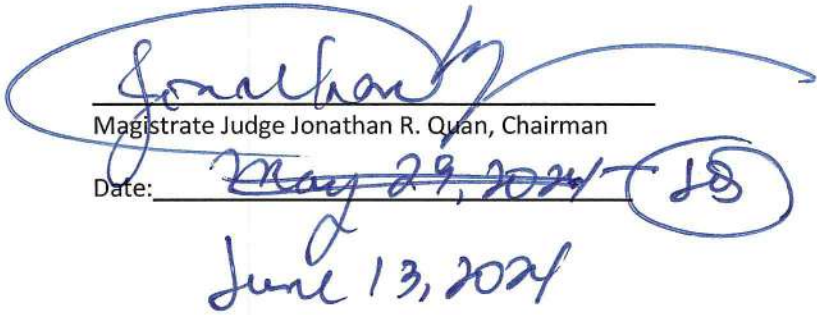 Jonathan
Magistrate Judge Jonathan R. Quan, Chairman
Date: May 29, 2024
June 13, 2024